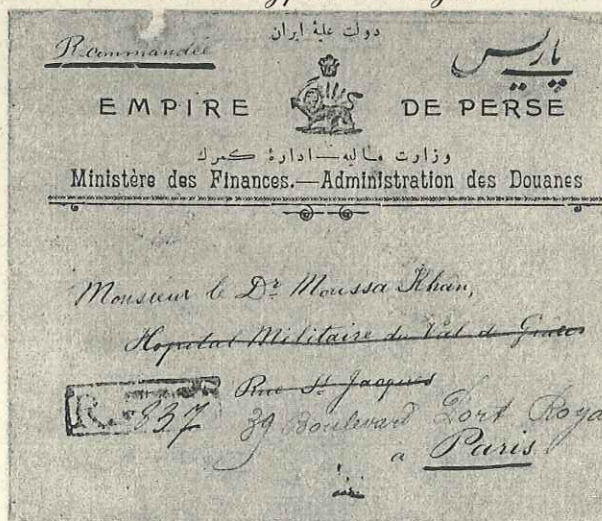 Recommandée
دولت علیهٔ ایران
پاریس
EMPIRE DE PERSE
وزارت مالیه — ادارهٔ کمرک
Ministère des Finances.—Administration des Douanes
Monsieur le Dr Moussa Khan,
Hopital Militaire du Val de Grâce
Rue St Jacques
R 837
39 Boulevard Port Roya
a Paris.